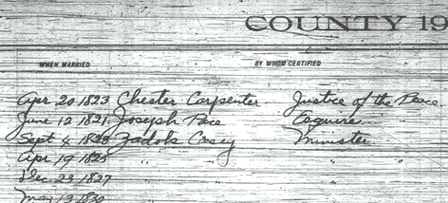 COUNTY 19
WHEN MARRIED BY WHOM CERTIFIED
Apr 20 1823 Chester Carpenter Justice of the Peace
June 12 1821 Joseph Pace Esquire
Sept 4 Zadok Casey Minister
Apr 19 1825 " "
Dec 23 1827
May 13 1830